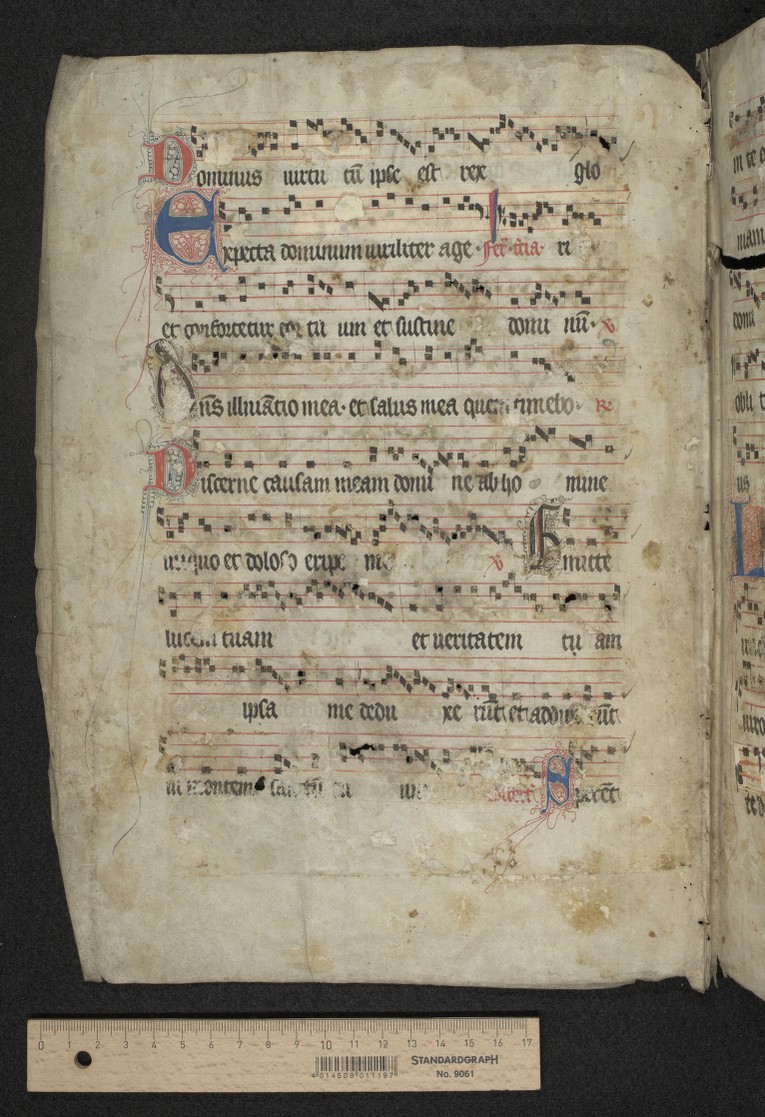 Dominus virtu tū ipse est rex glo
Expecta dominum viriliter age · fer · tīa · ri
et confortetur cor tu um et sustine domi nū · v
Dn̄s illuīatio mea · et salus mea quem timebo · R
Discerne causam meam domi ne ab ho mine
iniquo et doloso eripe me v Emitte
lucem tuam et veritatem tu am
ipsa me dedu xe rūt et addux rūt
in montem sanctū tu um
in te d
mam
domi
obli t
us
0 1 2 3 4 5 6 7 8 9 10 11 12 13 14 15 16 17
STANDARDGRAPH
4 014509 011197
No. 9061